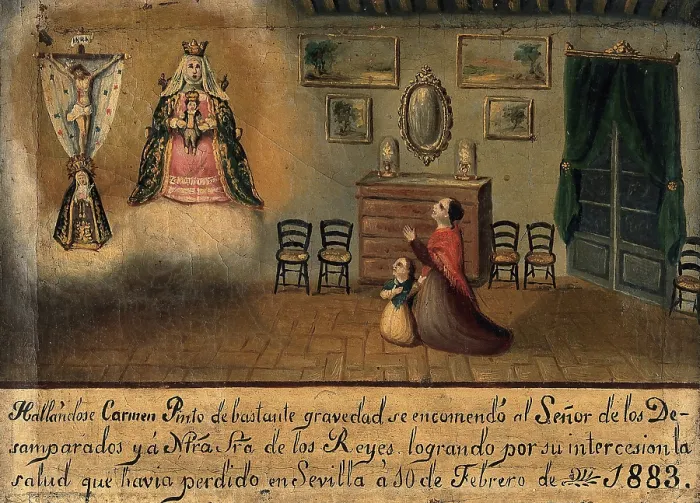 Hallandose Carmen Pinto de bastante gravedad se encomendó al Señor de los De-
samparados y á Ntrá Srá de los Reyes. logrando por su intercesion la
salud que havia perdido en Sevilla á 10 de Febrero de 1883.